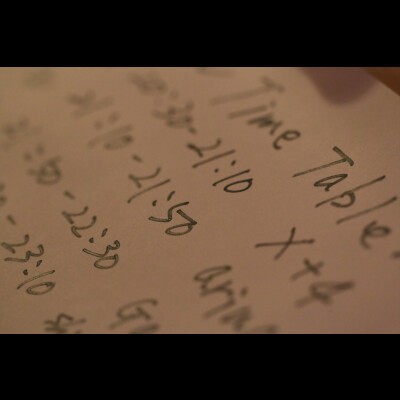 Time Table.
20:30-21:10 X+4
21:10-21:50
21:50-22:30
-23:10